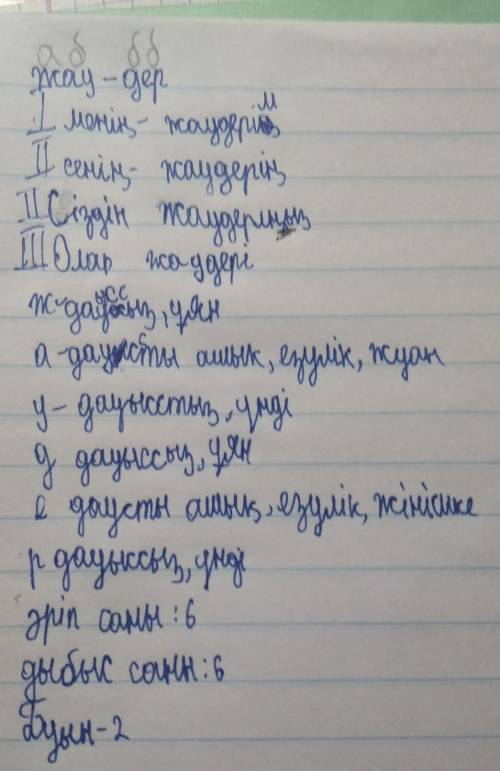 а б б б
жау - дер
I менің - жаудерім
II сенің - жаудерің
II Сіздін жаудериңыз
III Олар жаудері
ж - дауыссыз, ұян
а - дауысты ашық, езулік, жуан
у - дауысстыз, үнді
д дауыссыз, ұян
е даусты ашық, езулік, жінішке
р дауыссыз, үнді
әріп саны : 6
дыбык саны : 6
Буын - 2